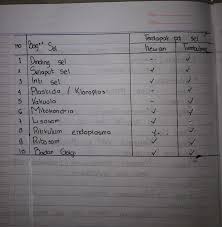 Terdapat pd sel
no Bag" Sel Hewan Tumbuhan
1 Dinding sel - ✓
2 Selaput sel ✓ ✓
3 Inti sel ✓ ✓
4 Plastida / Kloroplas - ✓
5 Vakuola - ✓
6 Mitokondria ✓ ✓
7 Lisosom ✓ ✓
8 Retikulum endoplasma ✓ ✓
9 Ribosom ✓ ✓
10 Badan Golgi ✓ ✓